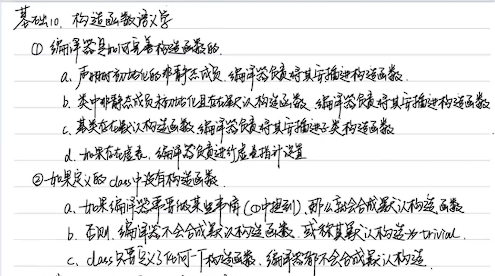 基础10. 构造函数语义学
① 编译器是如何完善构造函数的.
a. 声明时初始化的非静态成员, 编译器负责将其安插进构造函数.
b. 类中非静态成员未初始化且存在默认构造函数, 编译器负责将其安插进构造函数
c. 基类存在默认构造函数, 编译器负责将其安插进子类构造函数
d. 如果存在虚表, 编译器负责进行虚表指针设置
②如果定义的class中没有构造函数.
a. 如果编译器需要做某些事情(①中提到), 那么就会合成默认构造函数
b. 否则, 编译器不会合成默认构造函数, 或称其默认构造为trivial.
c. class只要定义了任何一个构造函数, 编译器都不会合成默认构造